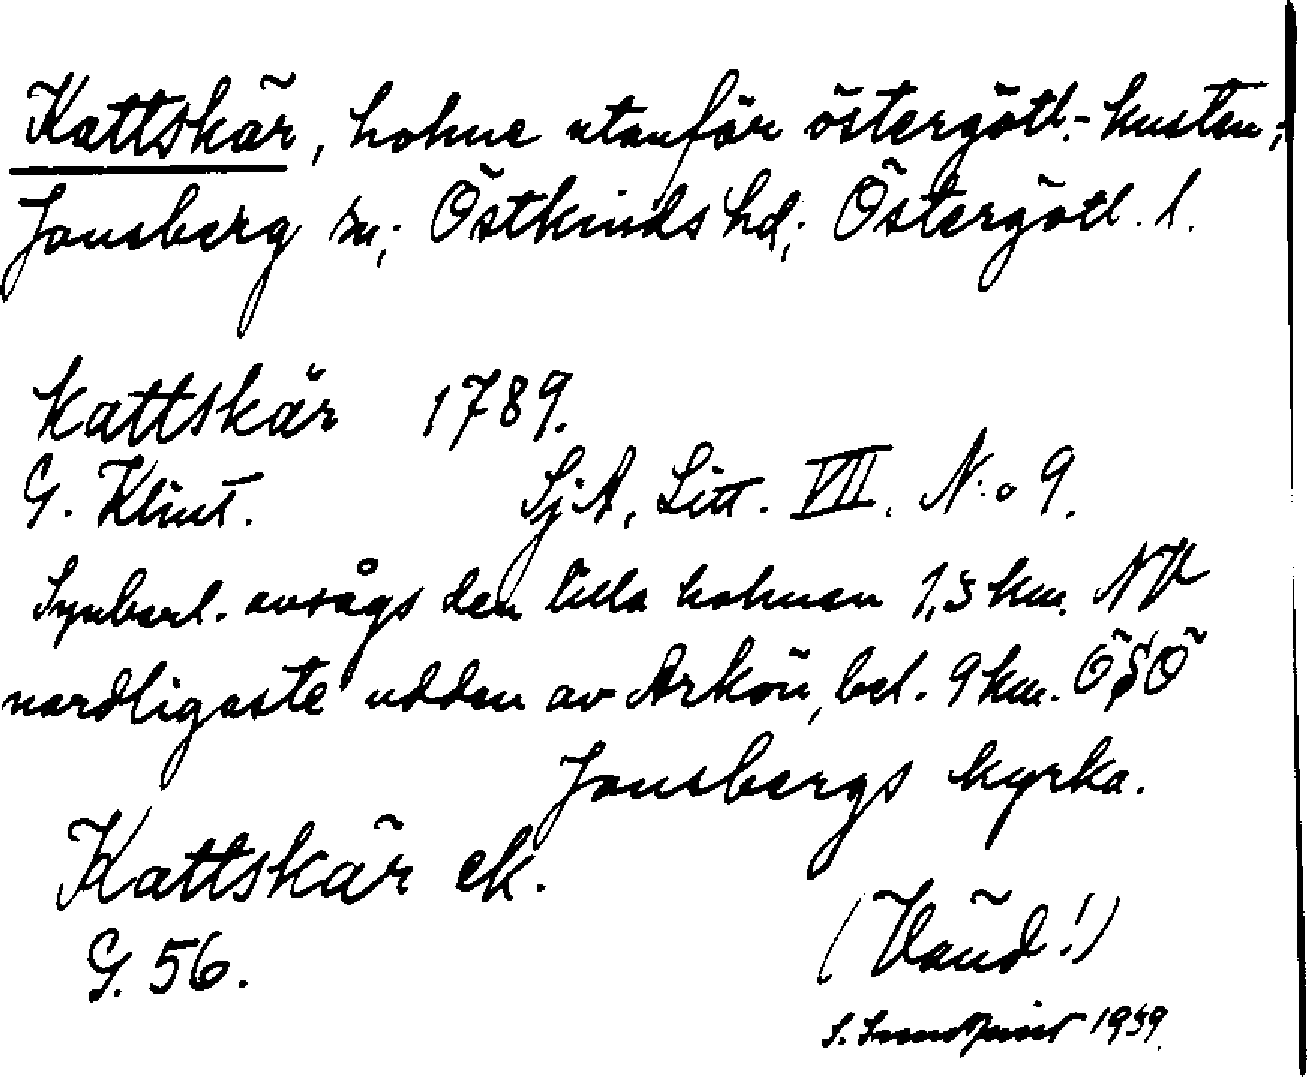 Kattskär, holme utanför östergötl.-kusten,
Jonsberg sn; Östkinds hd; Östergötl. l.
Kattskär 1789.
G. Klint. SjA, Litt. VII. N:o 9.
Synbarl. avsågs den lilla holmen 1,5 km. NV
nordligaste udden av Arkön, bel. 9 km. ÖSÖ
Jonsbergs kyrka.
Kattskär ek.
G. 56.
(Vänd!)
S. 1939.